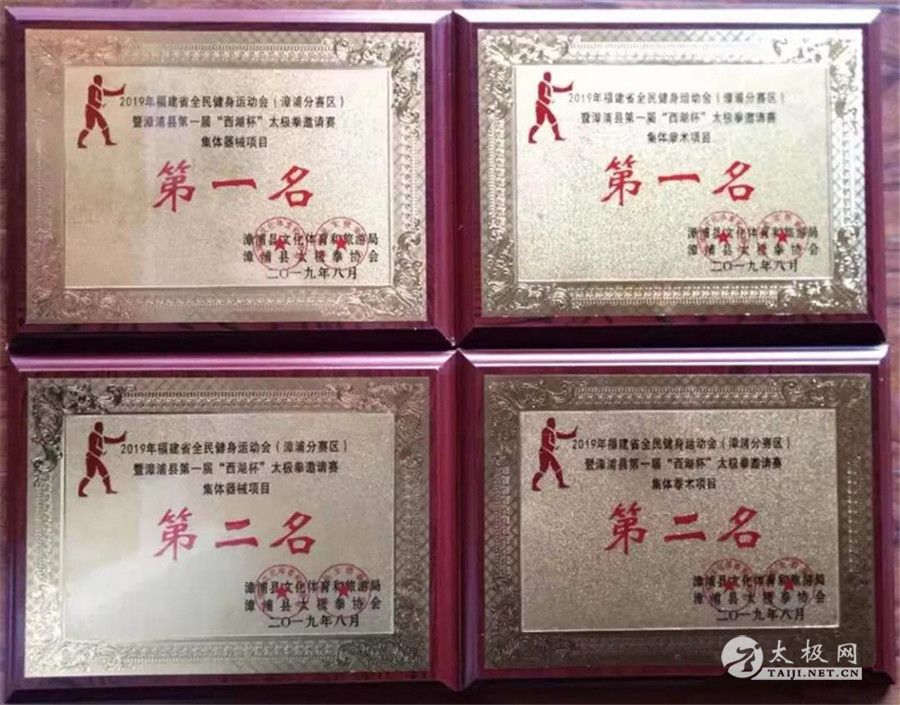 2019年福建省全民健身运动会（漳浦分赛区）
暨漳浦县第一届“西湖杯”太极拳邀请赛
集体器械项目
第一名
漳浦县文化体育和旅游局
漳浦县太极拳协会
二〇一九年八月
2019年福建省全民健身运动会（漳浦分赛区）
暨漳浦县第一届“西湖杯”太极拳邀请赛
集体拳术项目
第一名
漳浦县文化体育和旅游局
漳浦县太极拳协会
二〇一九年八月
2019年福建省全民健身运动会（漳浦分赛区）
暨漳浦县第一届“西湖杯”太极拳邀请赛
集体器械项目
第二名
漳浦县文化体育和旅游局
漳浦县太极拳协会
二〇一九年八月
2019年福建省全民健身运动会（漳浦分赛区）
暨漳浦县第一届“西湖杯”太极拳邀请赛
集体拳术项目
第二名
漳浦县文化体育和旅游局
漳浦县太极拳协会
二〇一九年八月
太极网
TAIJI.NET.CN